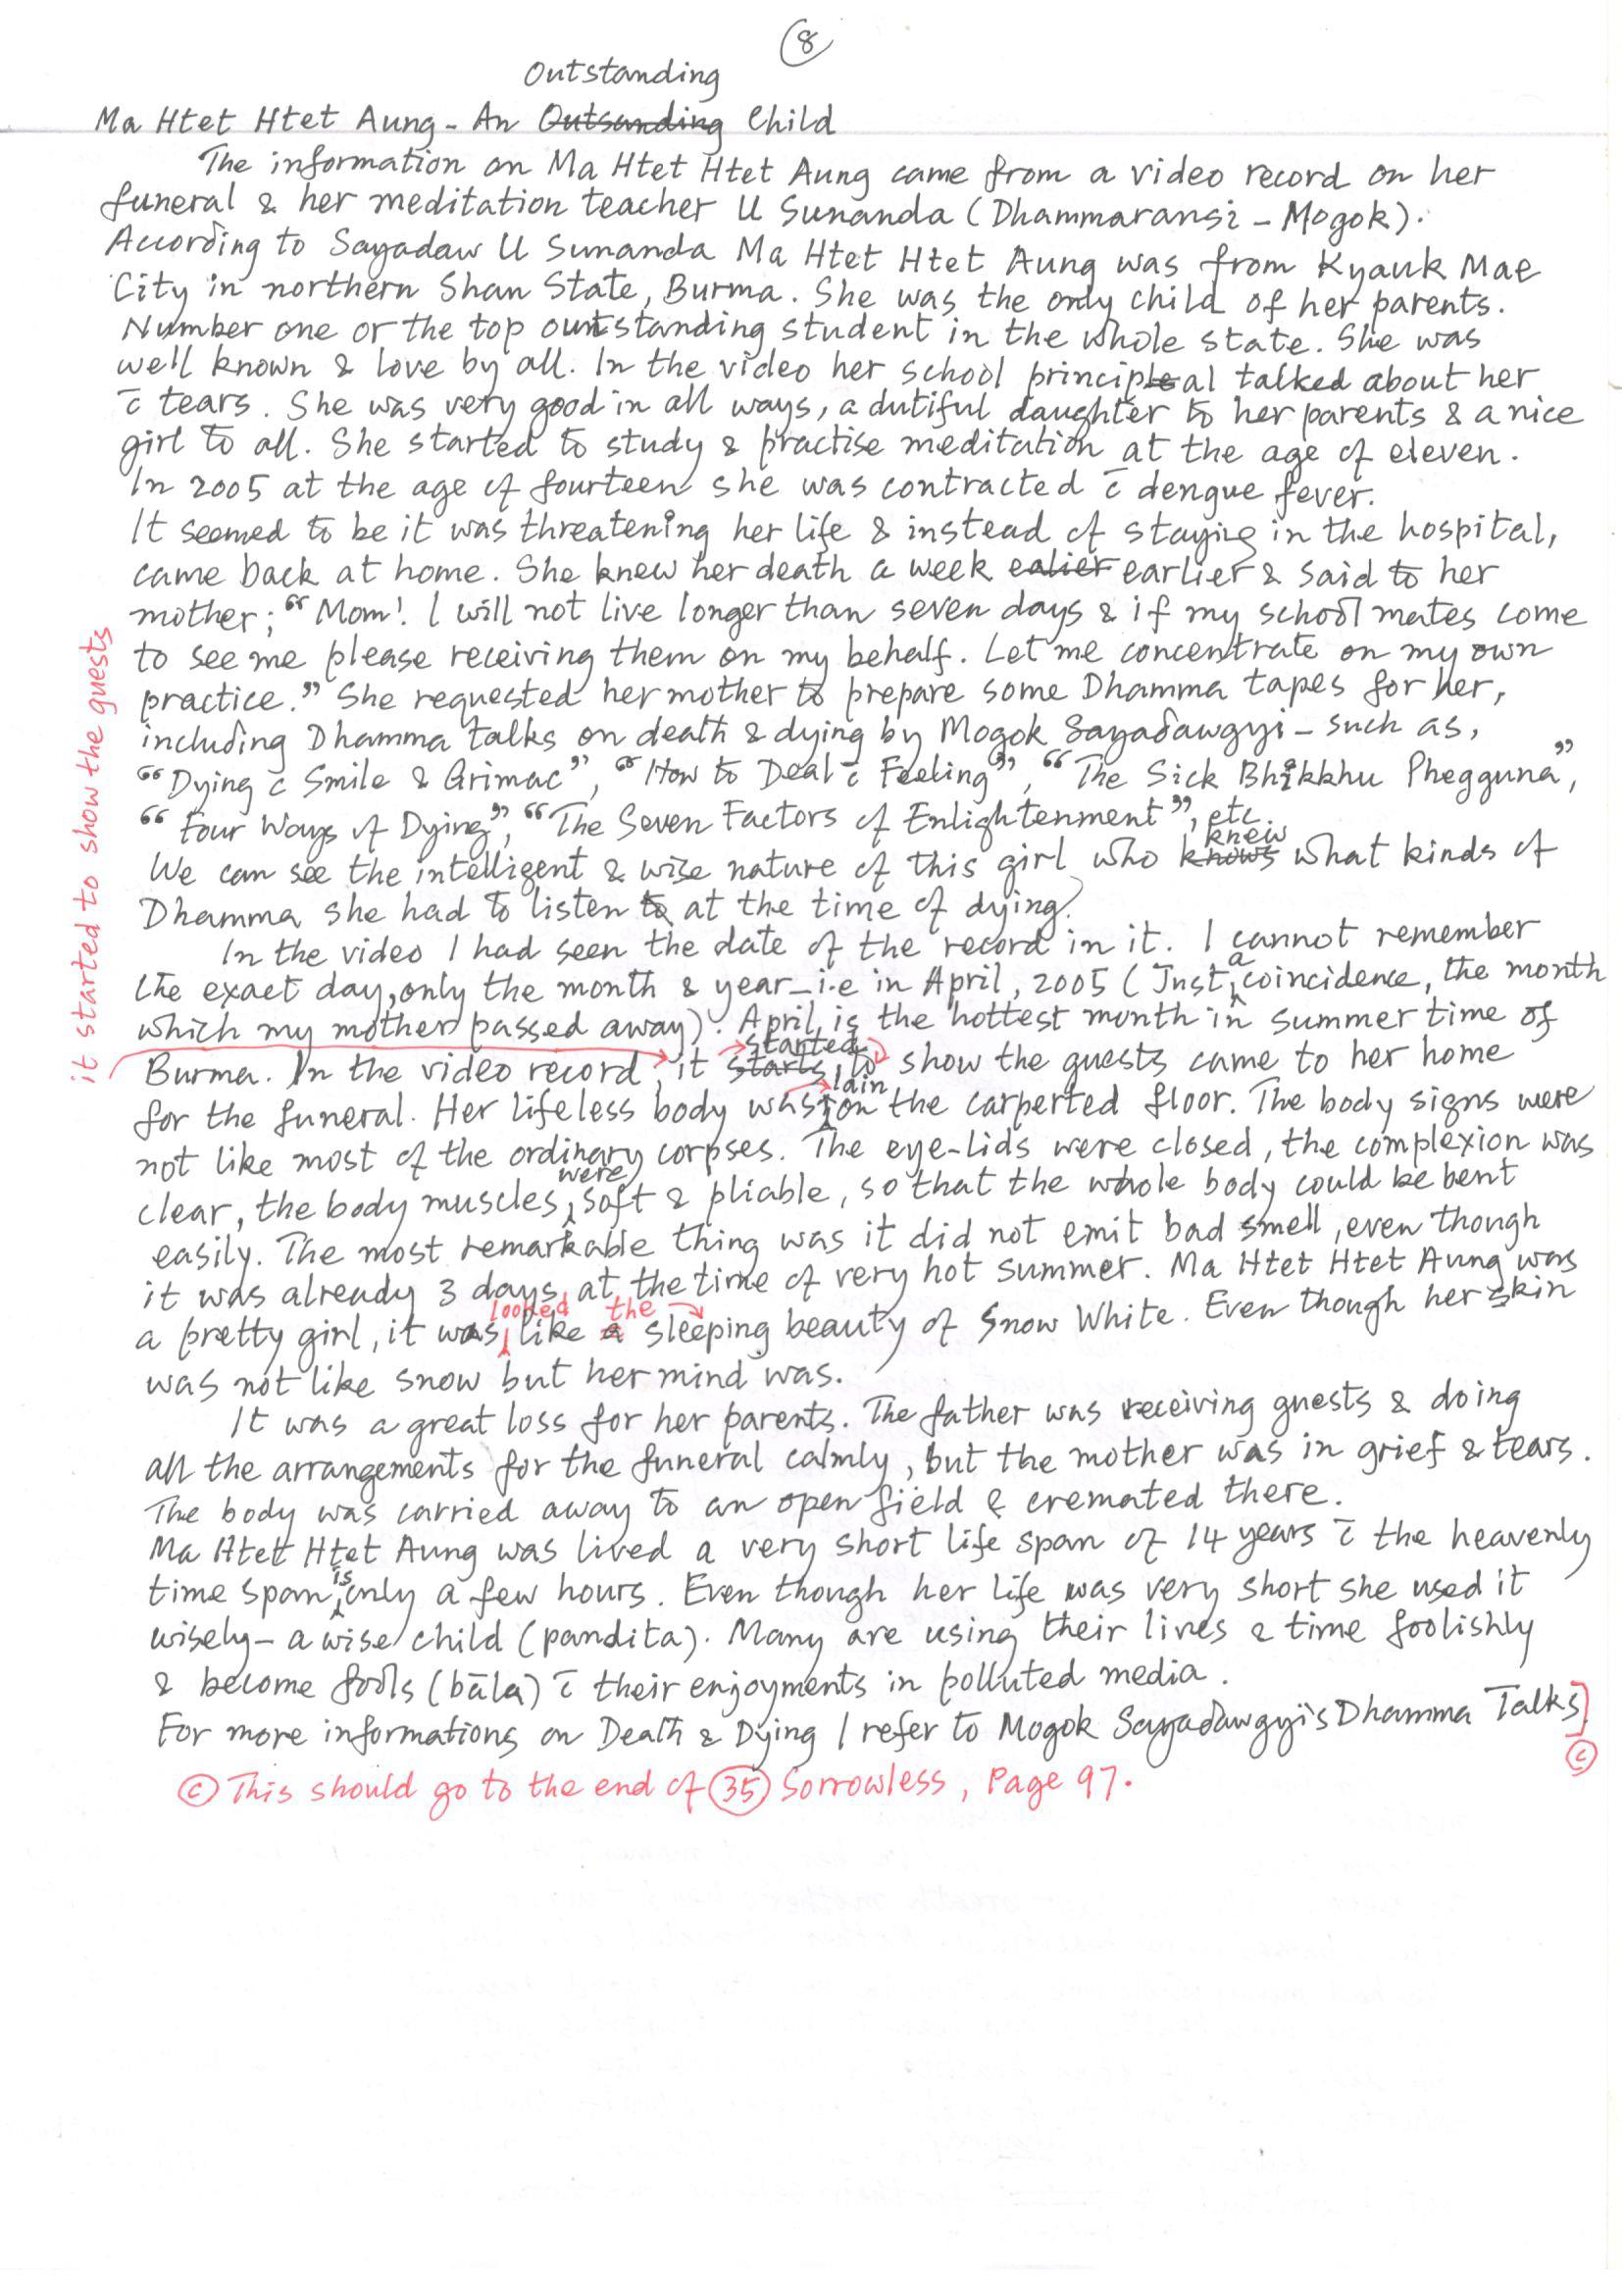 8
Outstanding
Ma Htet Htet Aung - An Outsanding Child
The information on Ma Htet Htet Aung came from a video record on her
funeral & her meditation teacher U Sunanda (Dhammaransi - Mogok).
According to Sayadaw U Sunanda Ma Htet Htet Aung was from Kyauk Mae
City in northern Shan State, Burma. She was the only child of her parents.
Number one or the top outstanding student in the whole state. She was
well known & love by all. In the video her school principal talked about her
c̄ tears. She was very good in all ways, a dutiful daughter to her parents & a nice
girl to all. She started to study & practise meditation at the age of eleven.
In 2005 at the age of fourteen she was contracted c̄ dengue fever.
It seemed to be it was threatening her life & instead of staying in the hospital,
came back at home. She knew her death a week ealier earlier & said to her
mother; "Mom! I will not live longer than seven days & if my school mates come
to see me please receiving them on my behalf. Let me concentrate on my own
practice." She requested her mother to prepare some Dhamma tapes for her,
including Dhamma talks on death & dying by Mogok Sayadawgyi - such as,
"Dying c̄ Smile & Grimac", "How to Deal c̄ Feeling", "The Sick Bhikkhu Phegguna",
"Four Ways of Dying", "The Seven Factors of Enlightenment", etc.
knew
We can see the intelligent & wise nature of this girl who knows what kinds of
Dhamma she had to listen to at the time of dying.
In the video I had seen the date of the record in it. I cannot remember
a
the exact day, only the month & year - i.e in April, 2005 (Just coincidence, the month
which my mother passed away). April is the hottest month in summer time of
started
Burma. In the video record, it starts to show the guests came to her home
lain
for the funeral. Her lifeless body was on the carperted floor. The body signs were
not like most of the ordinary corpses. The eye-lids were closed, the complexion was
were
clear, the body muscles soft & pliable, so that the whole body could be bent
easily. The most remarkable thing was it did not emit bad smell, even though
it was already 3 days, at the time of very hot summer. Ma Htet Htet Aung was
looked the
a pretty girl, it was like a sleeping beauty of Snow White. Even though her skin
was not like snow but her mind was.
It was a great loss for her parents. The father was receiving guests & doing
all the arrangements for the funeral calmly, but the mother was in grief & tears.
The body was carried away to an open field & cremated there.
Ma Htet Htet Aung was lived a very short life span of 14 years c̄ the heavenly
is
time span only a few hours. Even though her life was very short she used it
wisely - a wise child (pandita). Many are using their lives & time foolishly
& become fools (bāla) c̄ their enjoyments in polluted media.
For more informations on Death & Dying I refer to Mogok Sayadawgyi's Dhamma Talks]
©
© This should go to the end of 35 Sorrowless, Page 97.
it started to show the guests